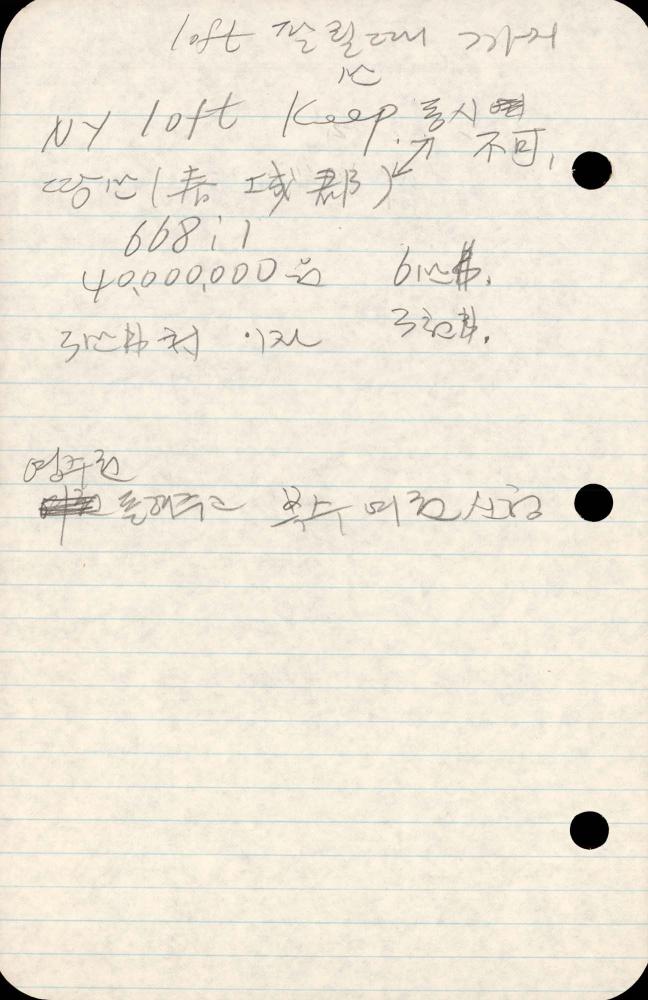 loft 팔릴때 까지
NY loft Keep 동시
不可,
땅 (春城郡)
668 : 1
40,000,000원 6만弗.
3만弗 처 이자 3천弗.
영주권
돌려주고 복수 여권 신청